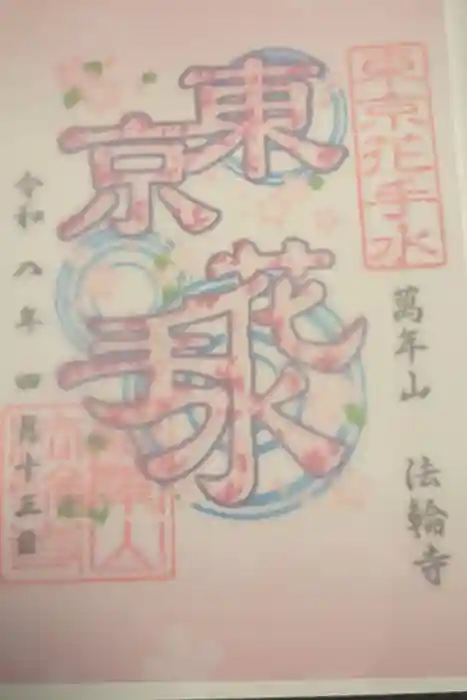 東京花手水
萬年山 法輪寺
東京
花手水
令和八年四月十三日